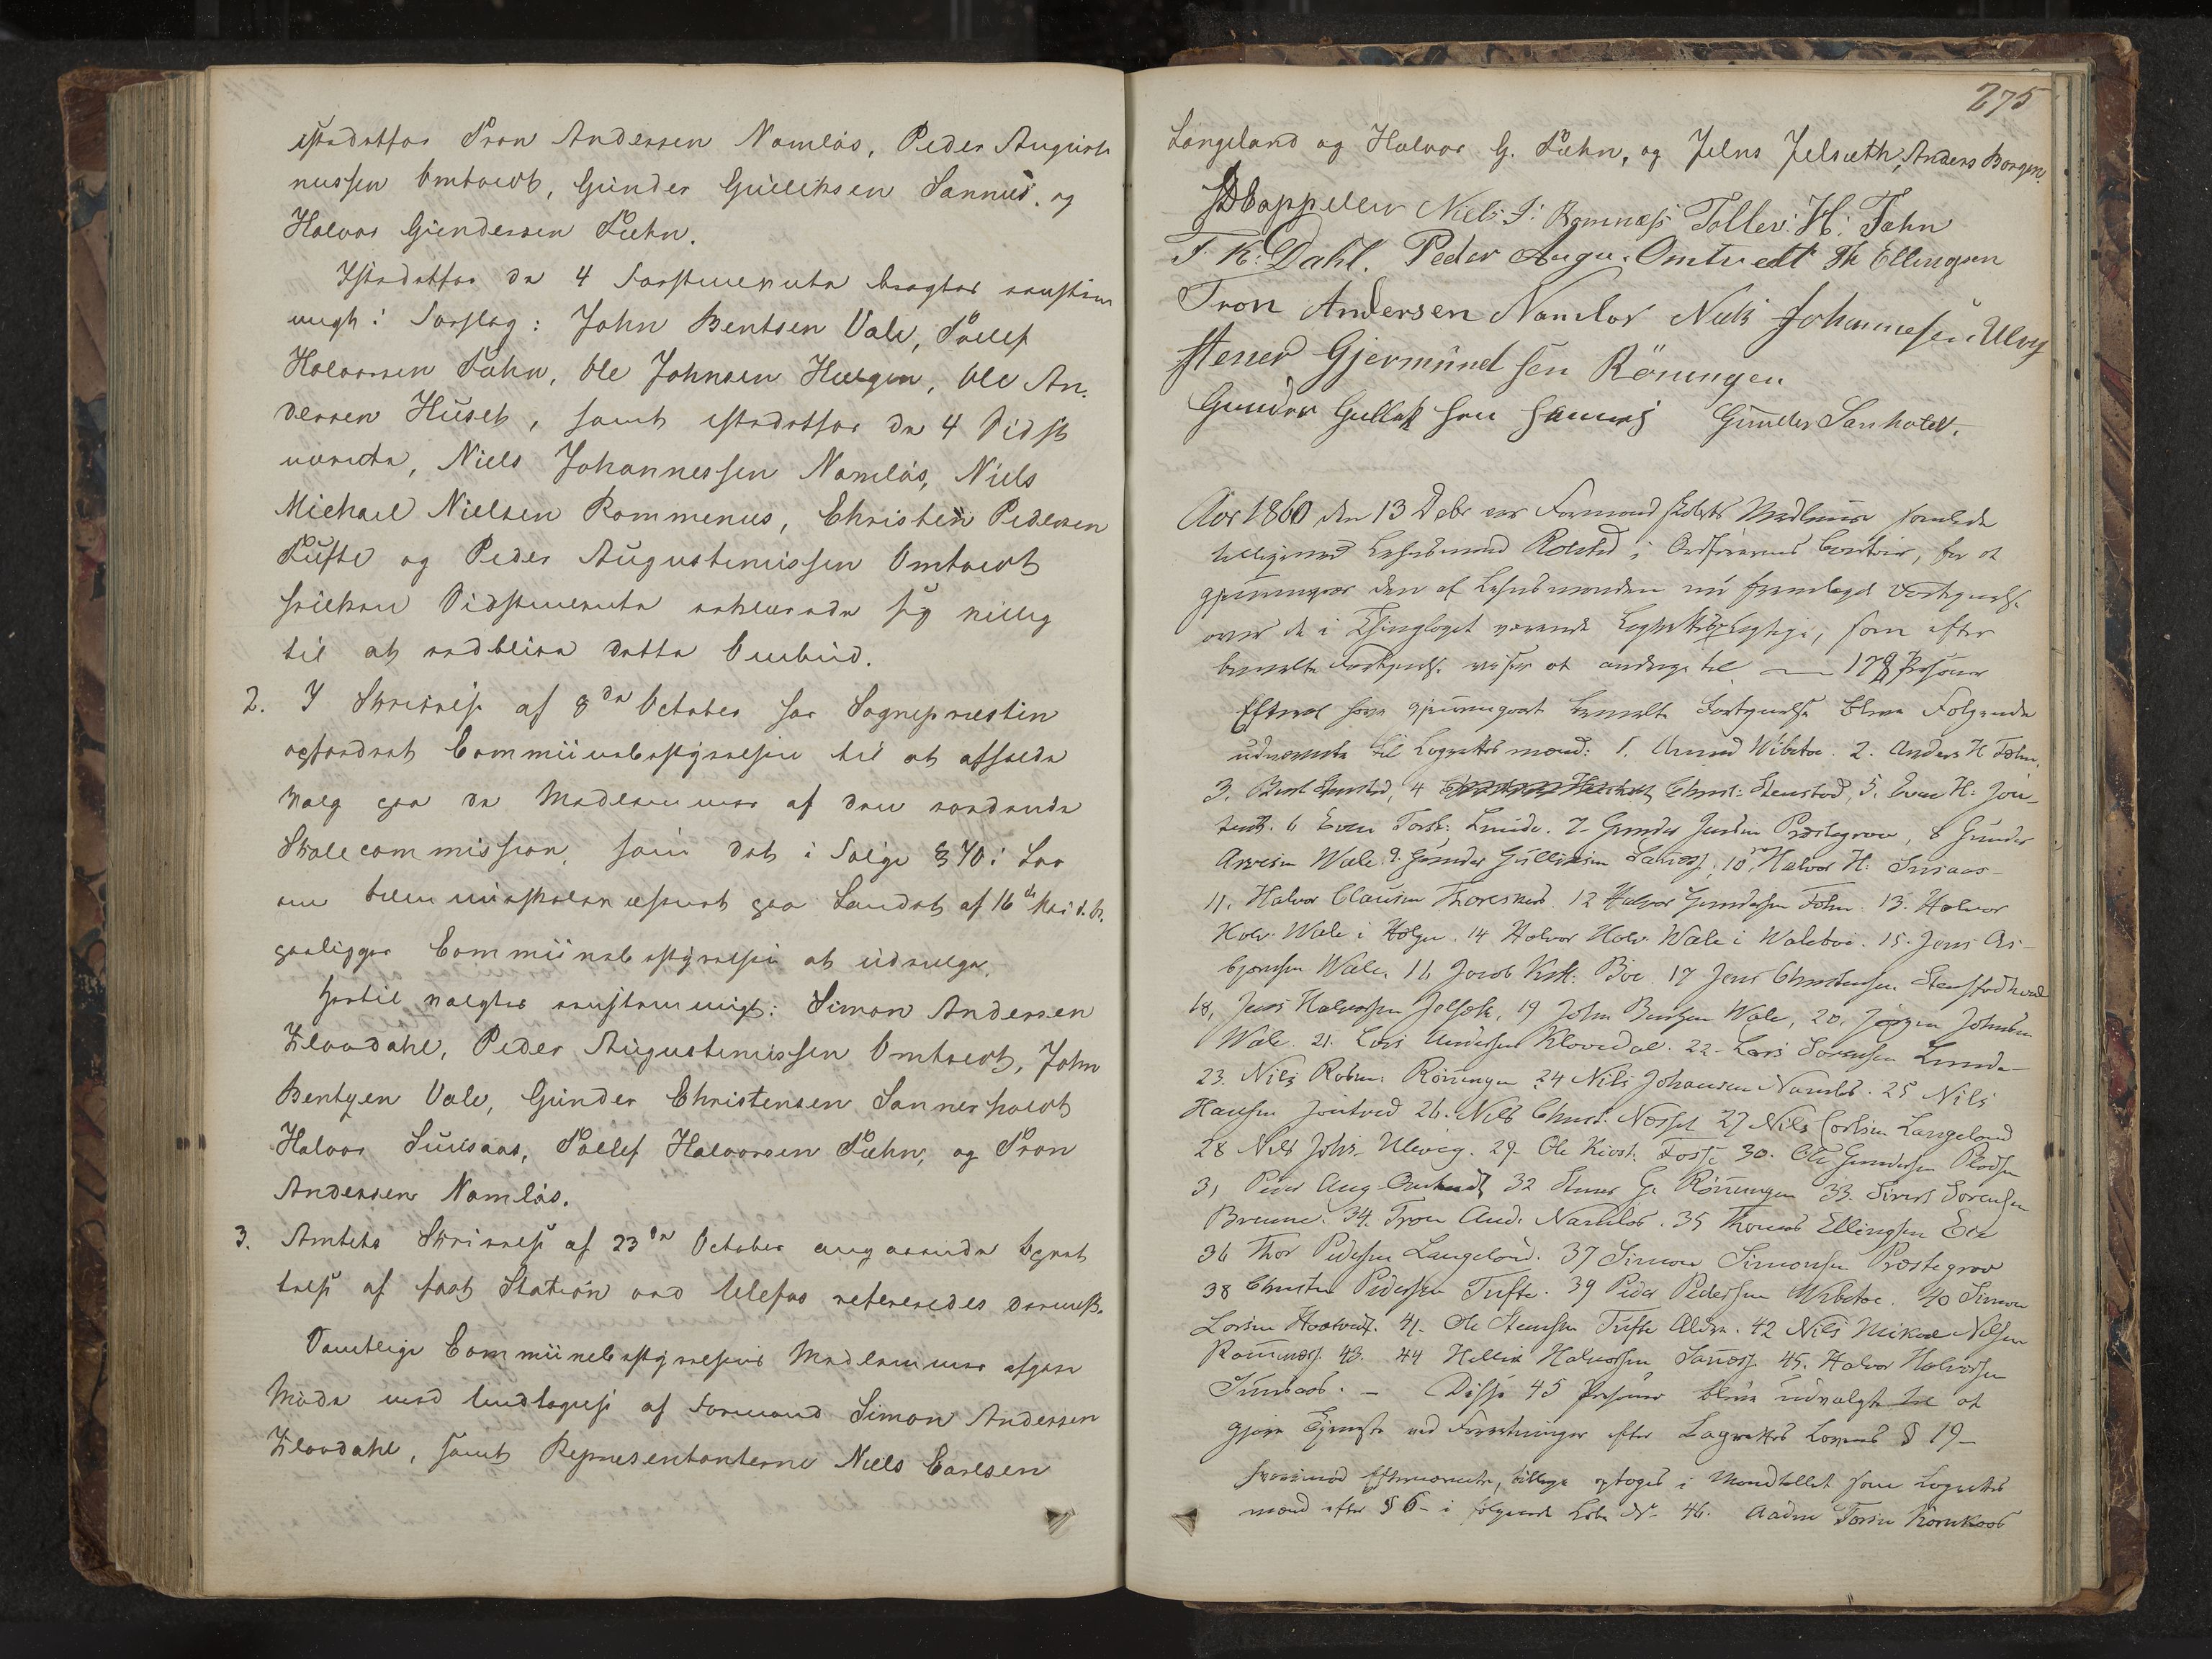 istedetfor Tron Andersen Namløs, Peder Augusti
nussen Omtvedt, Gunder Gulliksen Sannæs. og
Halvor Gundersen Tæhn.
Istedetfor de 4 Førstnævnte bragtes eenstem
migt i Forslag: John Bentsen Vale, Tollef
Halvorsen Tæhn, Ole Johnsen Hælgen, Ole An-
dersen Huset, samt istedetfor de 4 Sidst
nævnte, Niels Johannessen Namløs, Niels
Michael Nielsen Rommenæs, Christen Pedersen
Tufte og Peder Augustinussen Omtvedt
hvilken Sidstnævnte erklærede sig villig
til at vedblive dette Ombud.
2. I Skrivelse af 8de October har Sognepræsten
opfordret Communebestyrelsen til at afholde
Valg paa de Medlemmer af den vordende
Skolecommission, som det i Følge § 70 i Lov
om Almueskolevæsenet paa Landet af 16de Mai d. A.
paaligger Communebestyrelsen at udvælge.
Hertil valgtes eenstemmigt: Simon Andersen
Klovdahl, Peder Augustinussen Omtvedt, John
Bentzen Vale, Gunder Christensen Sannerholdt
Halvor Sunsaas, Tollef Halvorsen Tæhn, og Tron
Andersen Namløs.
3. Amtets Skrivelse af 23de October angaaende Opret
telse af fast Station ved Ulefos refereredes
Samtlige Communebestyrelsens Medlemmer afgave
Møde med Undtagelse af Formand Simon Andersen
Klovdahl, samt Repræsentanterne Niels Carlsen
275
Langeland og Halvor G. Tæhn, og Jelns Jelsæth, Anders Borgen.
Cappelen Niels J: Romnæs Tollev: H: Tæhn
T. K. Dahl. Peder Augu. Omtvedt Th Ellingsen
Tron Andersen Namløs Niels Johannesen Ulvig
Stener Gjermundsen Röningen
Gunder Gulliksen Sannæs Gunder Sanholdt.
Aar 1860 den 13 Debr var Formandskabets Medlemmer samlede
tilligemed Lehnsmand Rolsted i Ordførerens Contoir, for at
gjennemgaae den af Lehnsmanden nu fremlagte Fortegnelse
over de i Thinglaget værende Lagrettespligtige, som efter
bemelte Fortegnelse viser at andrage til — 178 Personer
Efter at have gjennemgaaet bemelte Fortegnelse bleve Følgende
udnævnte til Lagrettesmænd: 1. Amund Wibetoe. 2. Anders H Tæhn.
3. Bent 4 Christ: Stenstad, 5. Even H: Jon-
tvedt. 6 Even Torst: Lunde. 7. Gunder Justsen Præstegrav, 8 Gunder
Arvesen Wale. 9. Gunder Gulliksen Sannæs. 10. Halvor H: Sunsaas-
11. Halvor Clausen Thoreskaas 12 Halvor Gundersen Tæhn. 13. Halvor
Halv. Wale i Hælgen. 14 Halvor Halv. Wale i Waleboe. 15. Jens As-
bjørnsen Wale. 16 Jacob Boe 17 Jens Christensen Stenstadhval
18, Jens Halvorsen Jelseth, 19 John Bentzen Wale, 20. Jørgen Johnsen
Wale. 21. Lars Andersen Klovedal. 22- Lars Sørensen Lunde-
23. Nils Robm: Rönningen 24 Nils Johansen Namløs. 25 Nils
Hansen Jontved 26. Nils Christ. Næsset 27 Nils Carlsen Langeland
28 Nils Johs. Ulevig. 29. Ole Kirst. Fosse 30. Ole Gundersen
31 Peder Aug. Omtvedt 32 Stener G. Rönningen 33. Sivert Sørensen
Brenne. 34. Tron And. Namløs. 35 Thomas Ellingsen Eie
36 Thor Pedersen Langeland. 37 Simon Simonsen Præstegrav
38 Christen Pedersen Tufte. 39 Peder Pedersen Wibetoe. 40 Simon
Larsen Hvatved. 41. Ole Stensen Tufte Ældre. 42 Nils Mikael Nilsen
Romnæs. 43. 44 Hellik Halvorsen Sannæs. 45. Halvor Halvorsen
Sunsaas. — Disse 45 Personer bleve udvalgte til at
gjøre Tjeneste ved Forretninger efter Lagrettes Lovens § 19-
hvorimod Efternævnte, tillige optoges i Mandtallet som Lagrettes
mænd efter § 6- i følgende Løbe Nr. 46. Aadne Torsen Kornkaas